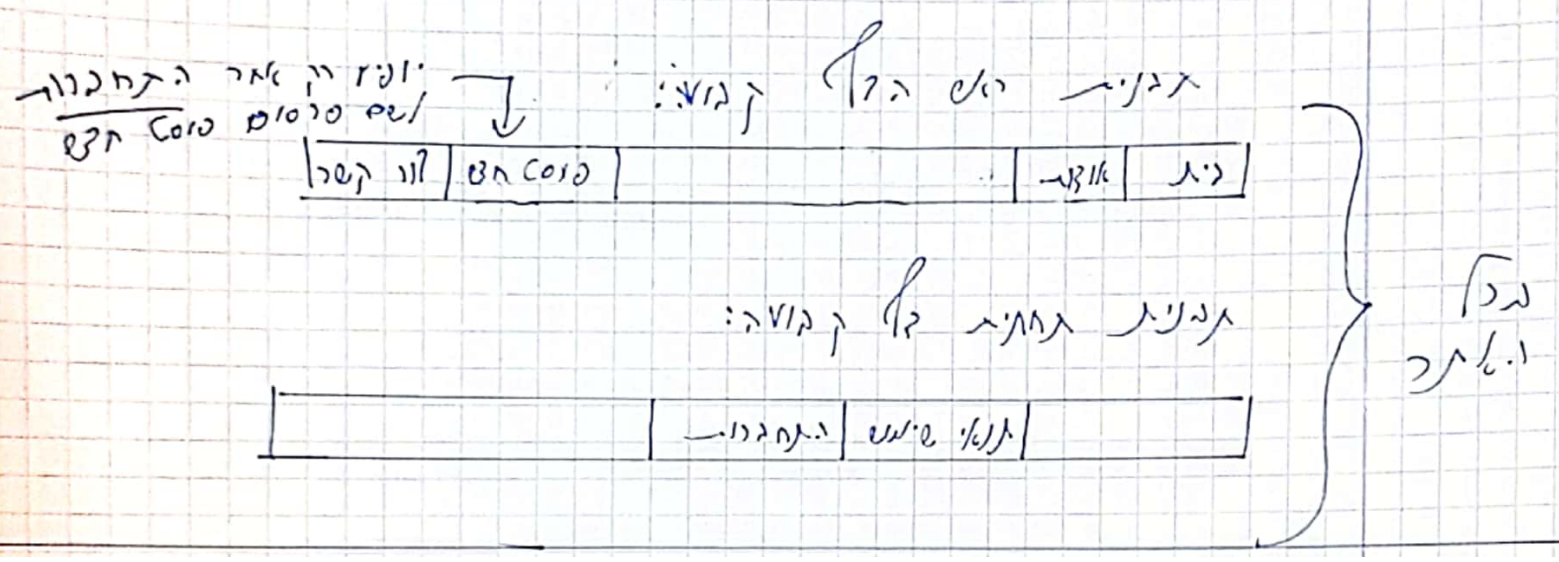 תבנית ראש הדף קבועה:
יופיע רק אחר התחברות
לשם פרסום פוסט חדש
בית
אודות
פוסט חדש
צור קשר
תבנית תחתית דף קבועה:
תנאי שימוש
התחברות
בכל
האתר